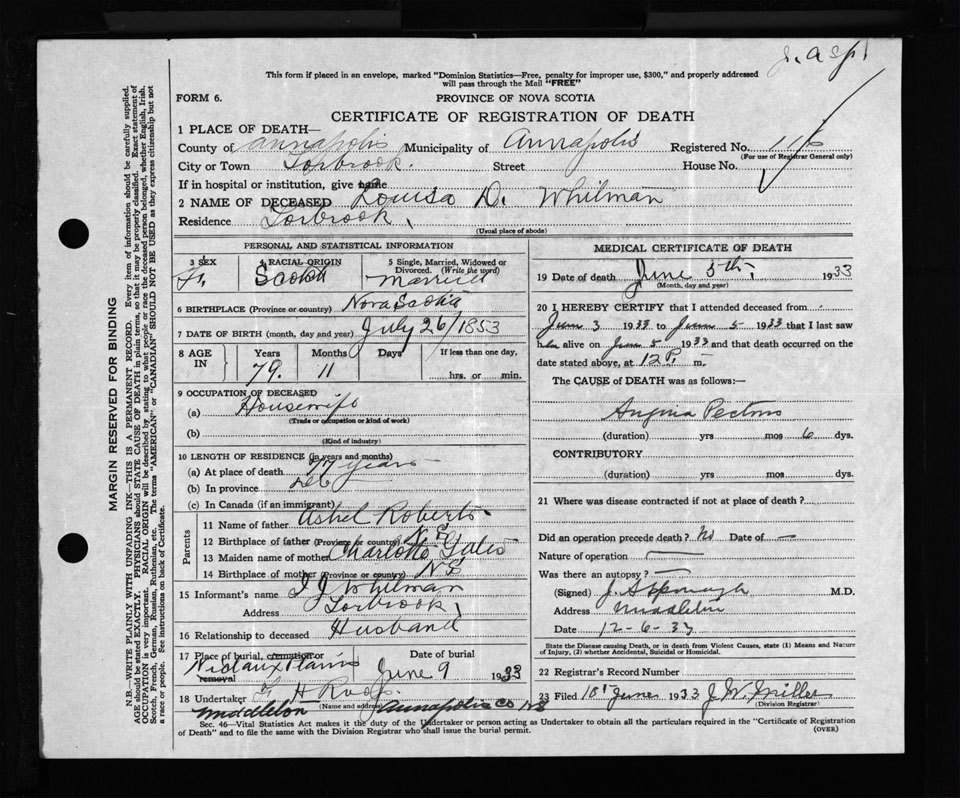 This form if placed in an envelope, marked "Dominion Statistics—Free, penalty for improper use, $300," and properly addressed
will pass through the Mail "FREE"
FORM 6.
PROVINCE OF NOVA SCOTIA
CERTIFICATE OF REGISTRATION OF DEATH
1 PLACE OF DEATH—
County of Annapolis Municipality of Annapolis Registered No. 116
(For use of Registrar General only)
City or Town Torbrook. Street House No.
If in hospital or institution, give name
2 NAME OF DECEASED Louisa D. Whitman
Residence Torbrook
(Usual place of abode)
MARGIN RESERVED FOR BINDING
N.B.—WRITE PLAINLY WITH UNFADING INK—THIS IS A PERMANENT RECORD. Every item of information should be carefully supplied.
AGE should be stated EXACTLY. PHYSICIANS should STATE CAUSE OF DEATH in plain terms, so that it may be properly classified. Exact statement of
OCCUPATION is very important. RACIAL ORIGIN will be described by stating to what people or race the deceased person belonged, whether English, Irish,
Scotch, French, German, Russian, Ruthenian, etc. The terms "AMERICAN" or "CANADIAN" SHOULD NOT BE USED as they express citizenship but not
a race or people. See instructions on back of Certificate.
PERSONAL AND STATISTICAL INFORMATION
3 SEX 4 RACIAL ORIGIN 5 Single, Married, Widowed or
Divorced. (Write the word)
F. Scotch Married
6 BIRTHPLACE (Province or country) Nova Scotia
7 DATE OF BIRTH (month, day and year) July 26/1853
8 AGE IN Years Months Days If less than one day,
79. 11 hrs. or min.
9 OCCUPATION OF DECEASED
(a) Housewife
(Trade or occupation or kind of work)
(b)
(Kind of industry)
10 LENGTH OF RESIDENCE (in years and months)
(a) At place of death 77 years
(b) In province
(c) In Canada (if an immigrant)
Parents
11 Name of father Roberts
12 Birthplace of father (Province or country) N S
13 Maiden name of mother Charlotte Gates
14 Birthplace of mother (Province or country) N S
15 Informant's name Whitman
Address Torbrook
16 Relationship to deceased Husband
17 Place of burial, cremation or removal Date of burial
Nictaux Plains June 9 1933
18 Undertaker H
(Name and address)
Middleton Annapolis Co N S
MEDICAL CERTIFICATE OF DEATH
19 Date of death June 5th, 1933
(Month, day and year)
20 I HEREBY CERTIFY that I attended deceased from
June 3 1933 to June 5 1933 that I last saw
her alive on June 5 1933 and that death occurred on the
date stated above, at 12 P. m.
The CAUSE of DEATH was as follows:—
Angina Pectoris
(duration) yrs mos 6 dys.
CONTRIBUTORY
(duration) yrs mos dys.
21 Where was disease contracted if not at place of death?
Did an operation precede death? No Date of —
Nature of operation —
Was there an autopsy? —
(Signed) M.D.
Address Middleton
Date 12-6-33
State the Disease causing Death, or in death from Violent Causes, state (1) Means and Nature
of Injury, (2) whether Accidental, Suicidal or Homicidal.
22 Registrar's Record Number
23 Filed June 1933 J. W. Miller
(Division Registrar)
Sec. 46—Vital Statistics Act makes it the duty of the Undertaker or person acting as Undertaker to obtain all the particulars required in the "Certificate of Registration
of Death" and to file the same with the Division Registrar who shall issue the burial permit.
(OVER)